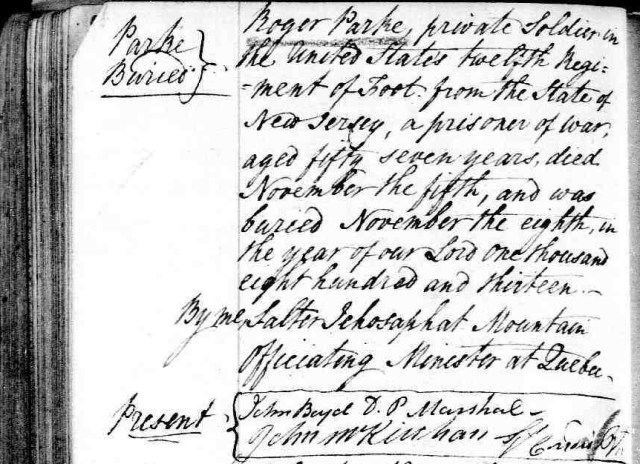 Parke
Buried
Roger Parke, private Soldier in
the United States twelfth Regi-
-ment of Foot from the State of
New Jersey, a prisoner of war,
aged fifty seven years, died
November the fifth, and was
buried November the eighth, in
the year of our Lord one thousand
eight hundred and thirteen.-
By me, Salter Jehosaphat Mountain
Officiating Minister at Quebec.
Present
John Boyd D. P. Marshal
John